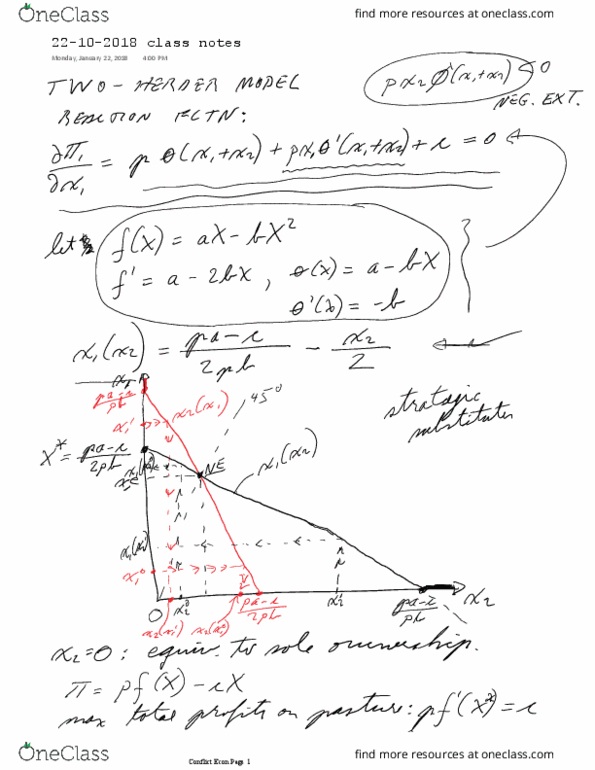 OneClass
find more resources at oneclass.com
22-10-2018 class notes
Monday, January 22, 2018 4:00 PM
TWO-HERDER MODEL
p x₂ ø'(x₁+x₂) < 0
NEG. EXT.
REACTION FCTN:
∂Π₁/∂x₁ = p ө(x₁+x₂) + px₁ө'(x₁+x₂) + c = 0
let
f(X) = aX - bX²
f' = a - 2bX , ө(X) = a - bX
ө'(X) = -b
x₁(x₂) = pa-c/2pb - x₂/2
x₁
pa-c/pb
x₂(x₁)
45°
strategic
substitutes
x₁'
X* = pa-c/2pb
NE
x₁(x₂)
x₁(x₂')
x₁⁰
O
x₂⁰
pa-c/2pb
x₂'
pa-c/pb
x₂
x₂(x₁') x₂(x₁⁰)
x₂=0: equiv. to sole ownership.
Π = pf(X) - cX
max total profits on pasture: pf'(X*) = c
OneClass
Conflict Econ Page 1
find more resources at oneclass.com